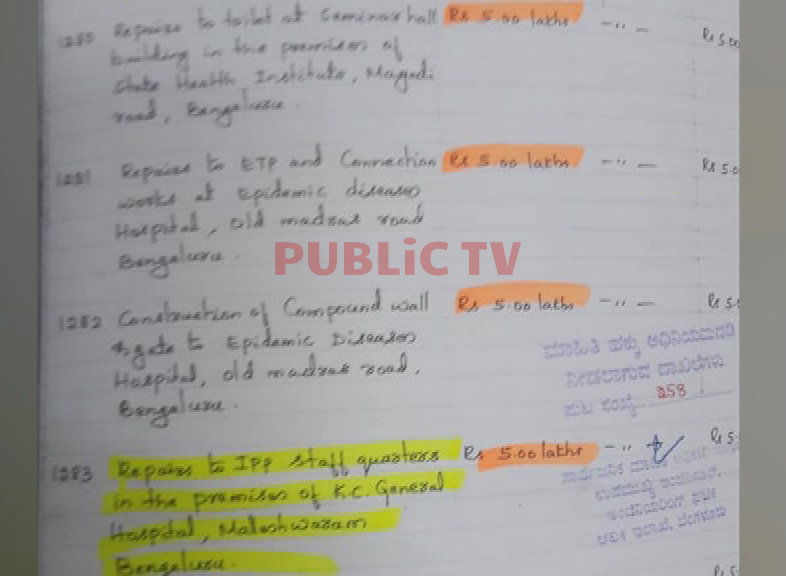 1280 Repaires to toilet at Seminar hall Rs 5.00 lakhs -"- Rs 5.00
building in the premises of
State Health Institute, Magadi
road, Bengaluru.
1281 Repaires to ETP and Connection Rs 5.00 lakhs -"- Rs 5.0
works at Epidemic diseases
Hospital, old madras road
Bengaluru.
PUBLiC TV
1282 Construction of Compound wall Rs 5.00 lakhs -"- Rs 5.
& gate to Epidemic Diseases
Hospital, old madras road,
Bengaluru.
ಮಾಹಿತಿ ಹಕ್ಕು ಅಧಿನಿಯಮದಡಿ
ನೀಡಲಾಗುವ ದಾಖಲೆಗಳು
ಪುಟ ಸಂಖ್ಯೆ 258
1283 Repaires to IPP staff quarters Rs 5.00 lakhs -" Rs 5.
in the premises of K.C. General
Hospital, Maleshwaram
Bengaluru.
ಸಾರ್ವಜನಿಕ ಮಾಹಿತಿ
ಇಂಜಿನಿಯರಿಂಗ್ ಘಟಕ
Rs 5.